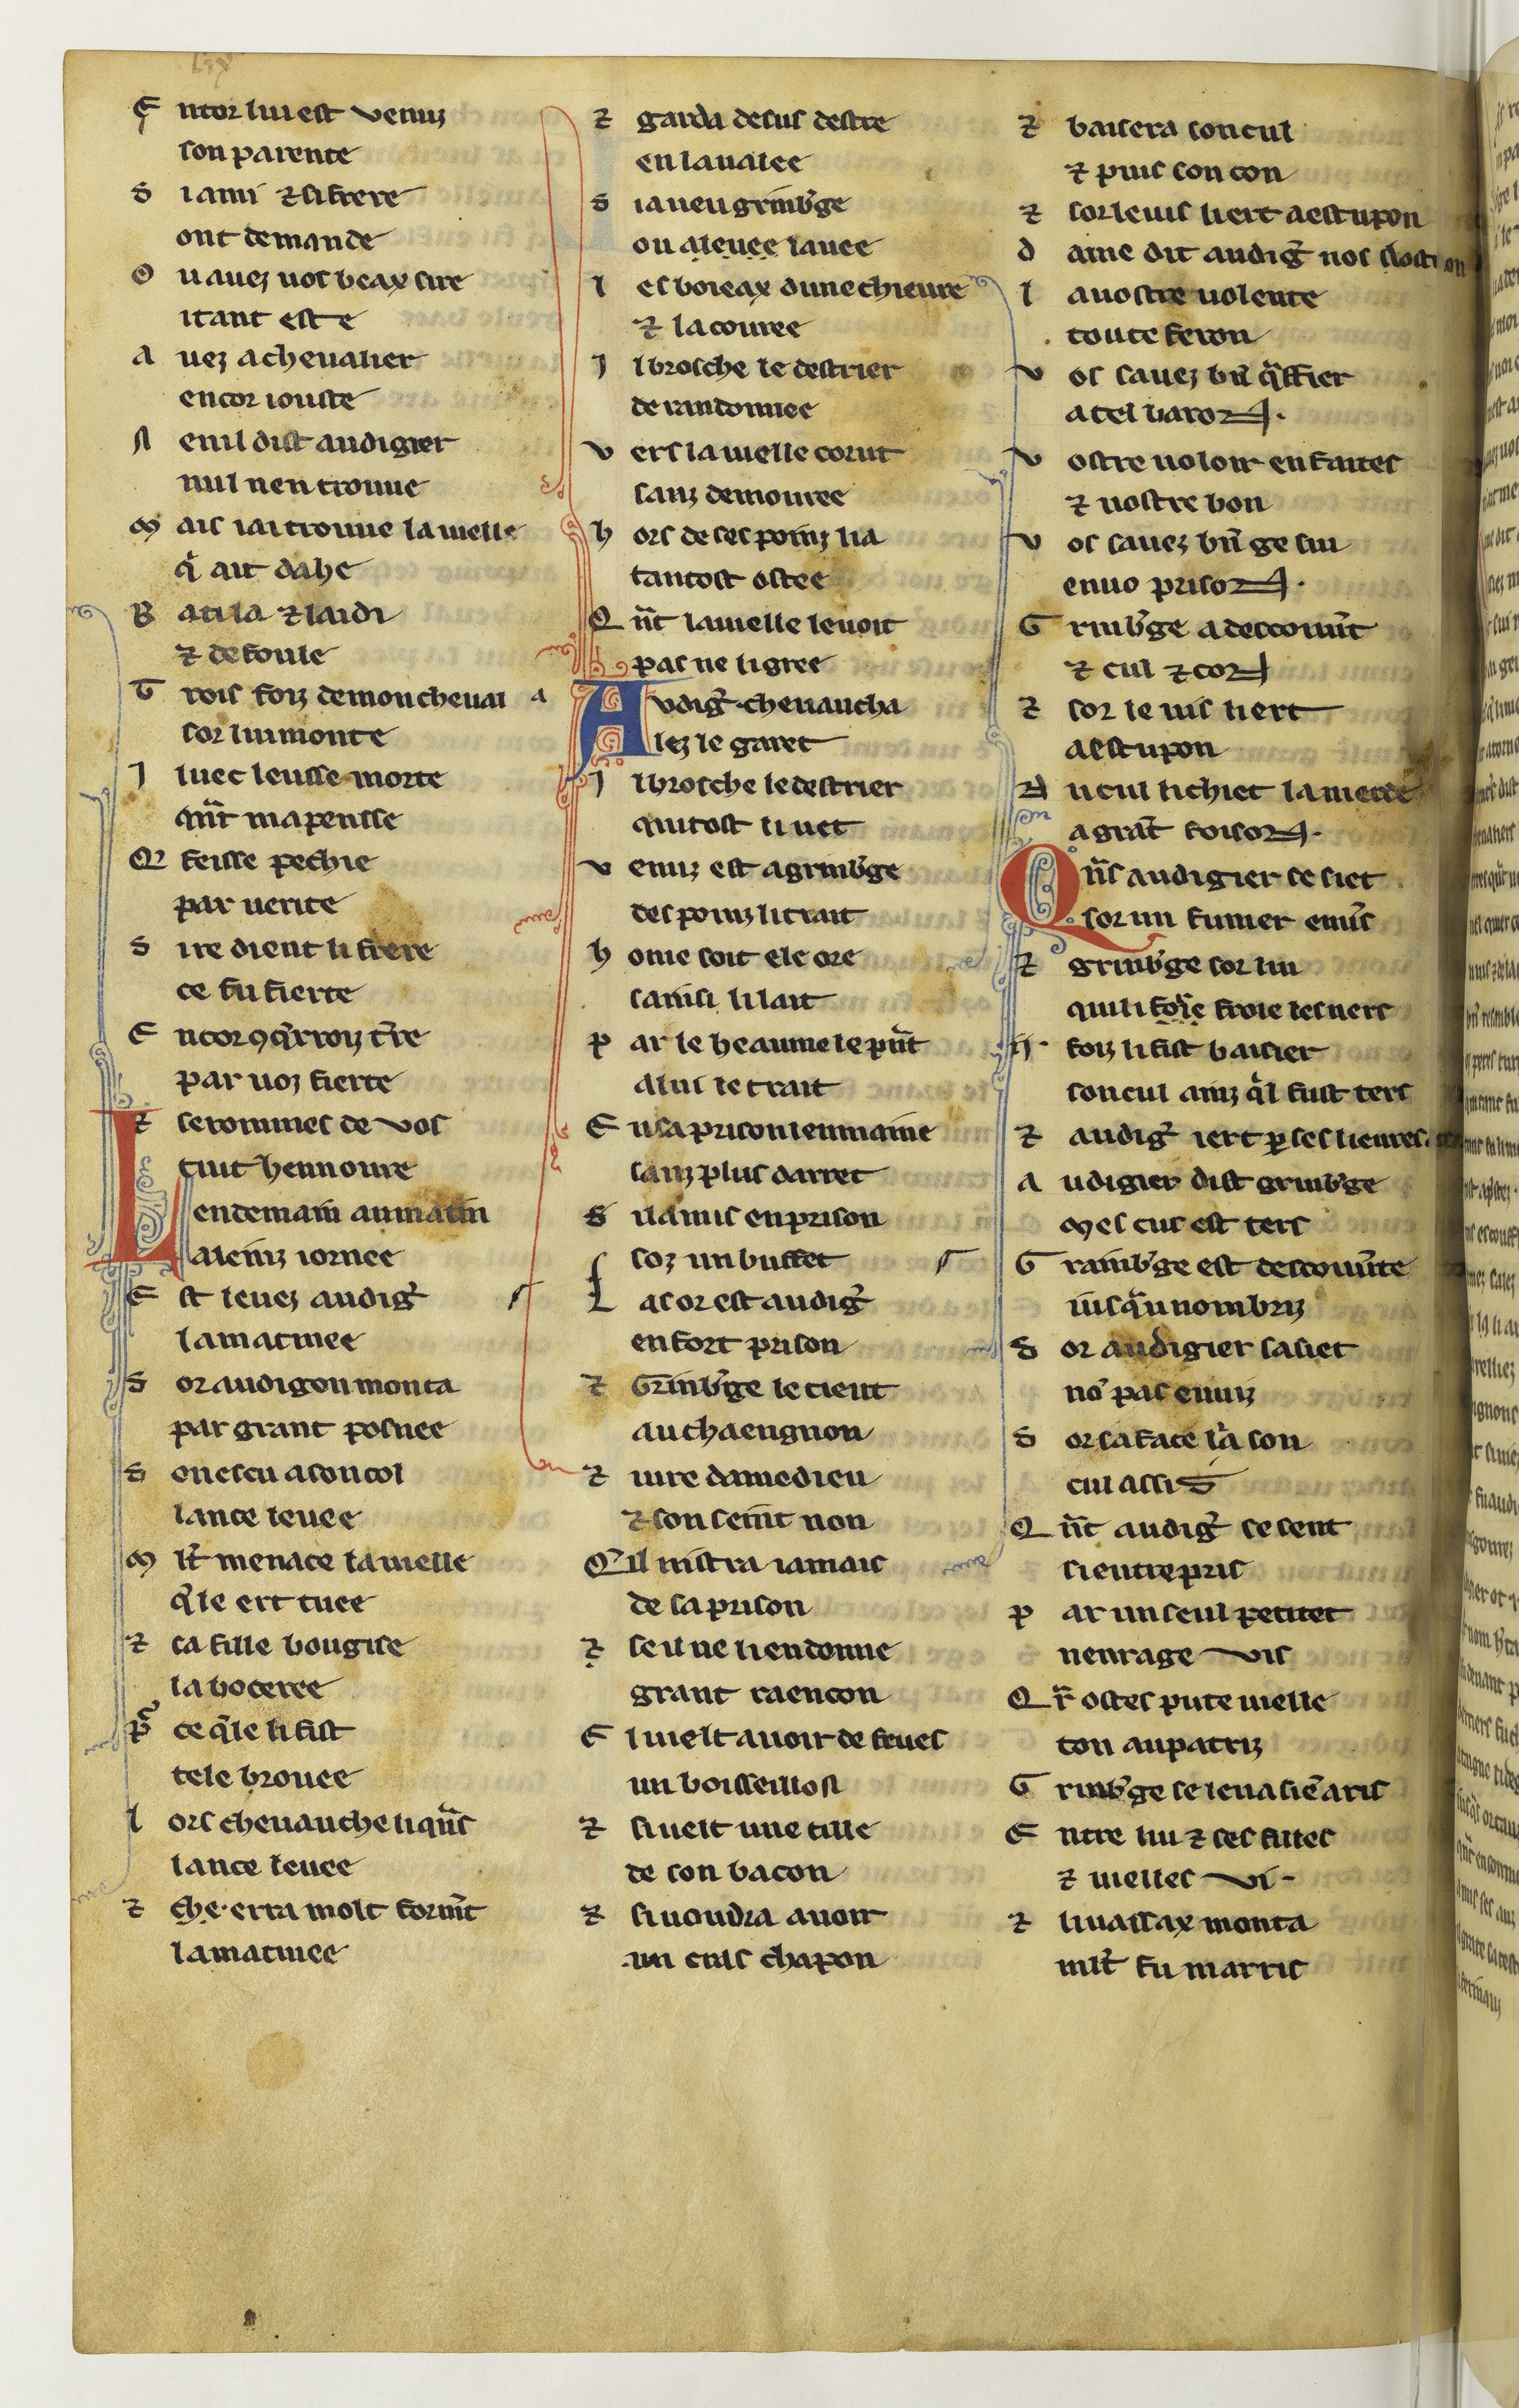 E ntor lui est venuz
son parente
S i ami ⁊ si frere
ont demande
O u auez uos beax sire
itant este
A uez a cheualier
encor iouste
N enil dist audigier
nul nen trouue
M ais iai trouue la uielle
qͥ ait dahe
B atu la ⁊ laidi
⁊ defoule
T rois foiz de mon cheual
sor lui monte
I luec leusse morte
qnt̃ ma pensse
Q feisse pechie
par uerite
S ire dient li frere
ce fu fierte
E ncor ꝯq̃rroiz tr̃e
par uoz fierte
⁊ serommes de vos
tuit hennoure
L endemain au matin
a leinz iornee
E st leuez audig̃
la matinee
S or audigon monta
par grant posnee
S on escu a son col
lance leuee
M lt̃ menace la uielle
q̃le ert tuee
⁊ sa fille bougise
la boceree
P̃ ce q̃le li fist
tele brouee
L ors cheuauche li quñs
lance leuee
⁊ che erra molt formt̃
la matinee
⁊ garda desus destre
en la ualee
S i a ueu grinb̃ge
ou a leuee lauee
L es boieax dune chieure
⁊ la couree
I l brosche le destrier
de randonnee
V ers la uielle corut
sanz demouree
H ors de ses poinz li a
tantost ostee
Q nt̃ la uielle le uoit
pas ne li gree
A vdig̃ cheuaucha
lez le garet
I l brosche le destrier
qui tost li uet
V enuz est a grinb̃ge
des poinz li trait
H onie soit ele ore
sainsi li lait
P ar le heaume le pñt
a lui le trait
E n sa prison lenmaine
sanz plus darret
S il a mis en prison
soz un buffet
L as or est audig̃
en fort prison
⁊ Grinb̃ge le tient
au chaengnon
⁊ iure damedieu
⁊ son seint non
Q il nistra iamais
de sa prison
⁊ se il ne li en donne
grant raencon
E l uielt auoir de feues
un boisseillon
⁊ si uelt une tille
de son bacon
⁊ si uoudra auoir
un cras chapon
⁊ baisera son cul
⁊ puis son con
⁊ sor le uis li ert a estupon
D ame dit audig̃ nos lostron
L a uostre uolente
toute feron
V os sauez bñ q̃ffier
a tel baron.
V ostre uoloir en faites
⁊ uostre bon
V os sauez bñ ge sui
en uo prison.
G rinb̃ge a descouut̃
⁊ cul ⁊ con
⁊ sor le uis li ert
a estupon
D u cul li chiet la merde
a grãt foison.
Q ñs audigier se siet
sor un fumier enuẽs
⁊ grinb̃ge sor lui
qui li froie les ners
ij. foiz li fist baisier
son cul ainz q̃l fust ters
⁊ audig̃ iert p ses lieures
A udigier dist grinb̃ge
mes cus est ters
G rainb̃ge est descouũte
iusq̃u nombriz
S or audigier sasiet
nõ pas enuiz
S or sa face la son
cul assis
Q nt̃ audig̃ se sent
si entrepris
P ar un seul petitet
nenrage vis
Q r̃ ostes pute uielle
ton aupatriz
G rinb̃ge se leua si en a ris
E ntre lui ⁊ ses filles
⁊ uielles vi.
⁊ li uassax monta
mlt̃ fu marris